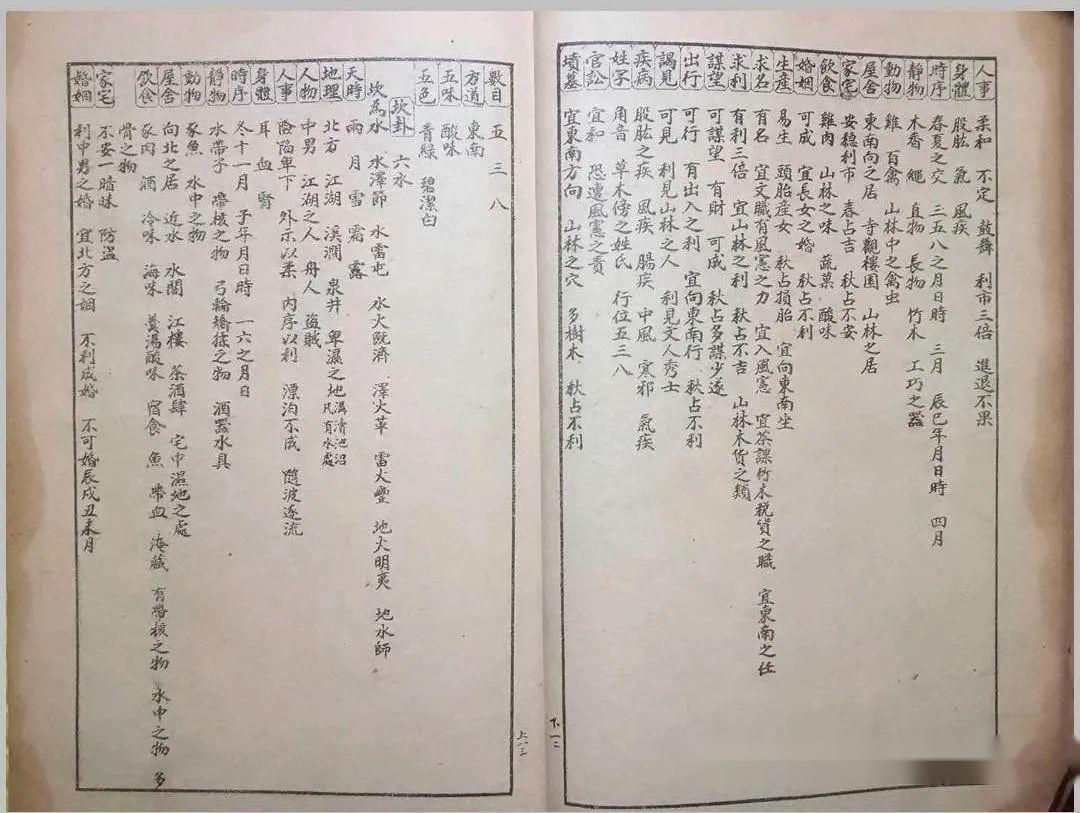 人事 柔和 不定 鼓舞 利市三倍 進退不果
身體 股肱 氣 風疾
時序 春夏之交 三五八之月日時 三月 辰巳年月日時 四月
靜物 木香 繩 直物 長物 竹木 工巧之器
動物 雞 百禽 山林中之禽虫
屋舍 東南向之居 寺觀樓園 山林之居
家宅 安穩利市 春占吉 秋占不安
飲食 雞肉 山林之味 蔬菓 酸味
婚姻 可成 宜長女之婚 秋占不利
生產 易生 頭胎產女 秋占損胎 宜向東南坐
求名 有名 宜文職有風憲之力 宜入風憲 宜茶課竹木税貨之職 宜東南之任
求利 有利三倍 宜山林之利 秋占不吉 山林木貨之類
謀望 可謀望 有財 可成 秋占多謀少遂
出行 可行 有出入之利 宜向東南行 秋占不利
謁見 可見 利見山林之人 利見文人秀士
疾病 股肱之疾 風疾 腸疾 中風 寒邪 氣疾
姓字 角音 草木傍之姓氏 行位五三八
官訟 宜和 恐遭風憲之責
墳墓 宜東南方向 山林之穴 多樹木 秋占不利
下一二
數目 五 三 八
方道 東南
五味 酸味
五色 青綠 碧潔白
坎卦 六水
坎為水 水澤節 水雷屯 水火既濟 澤火革 雷火豐 地火明夷 地水師
天時 雨 月 雪 霜 露
地理 北方 江湖 溪澗 泉井 卑濕之地 溝瀆池沼凡有水處
人物 中男 江湖之人 舟人 盜賊
人事 險陷卑下 外示以柔 內序以利 漂泊不成 隨波逐流
身體 耳 血 腎
時序 冬十一月 子年月日時 一六之月日
靜物 水帶子 帶核之物 弓輪矯揉之物 酒器水具
動物 豕魚 水中之物
屋舍 向北之居 近水 水閣 江樓 茶酒肆 宅中濕地之處
飲食 豕肉 酒 冷味 海味 羹湯酸味 宿食 魚 帶血 淹藏 有帶核之物 水中之物 多
骨之物
家宅 不安 暗昧 防盜
婚姻 利中男之婚 宜北方之姻 不利成婚 不可婚辰戌丑未月
上一三